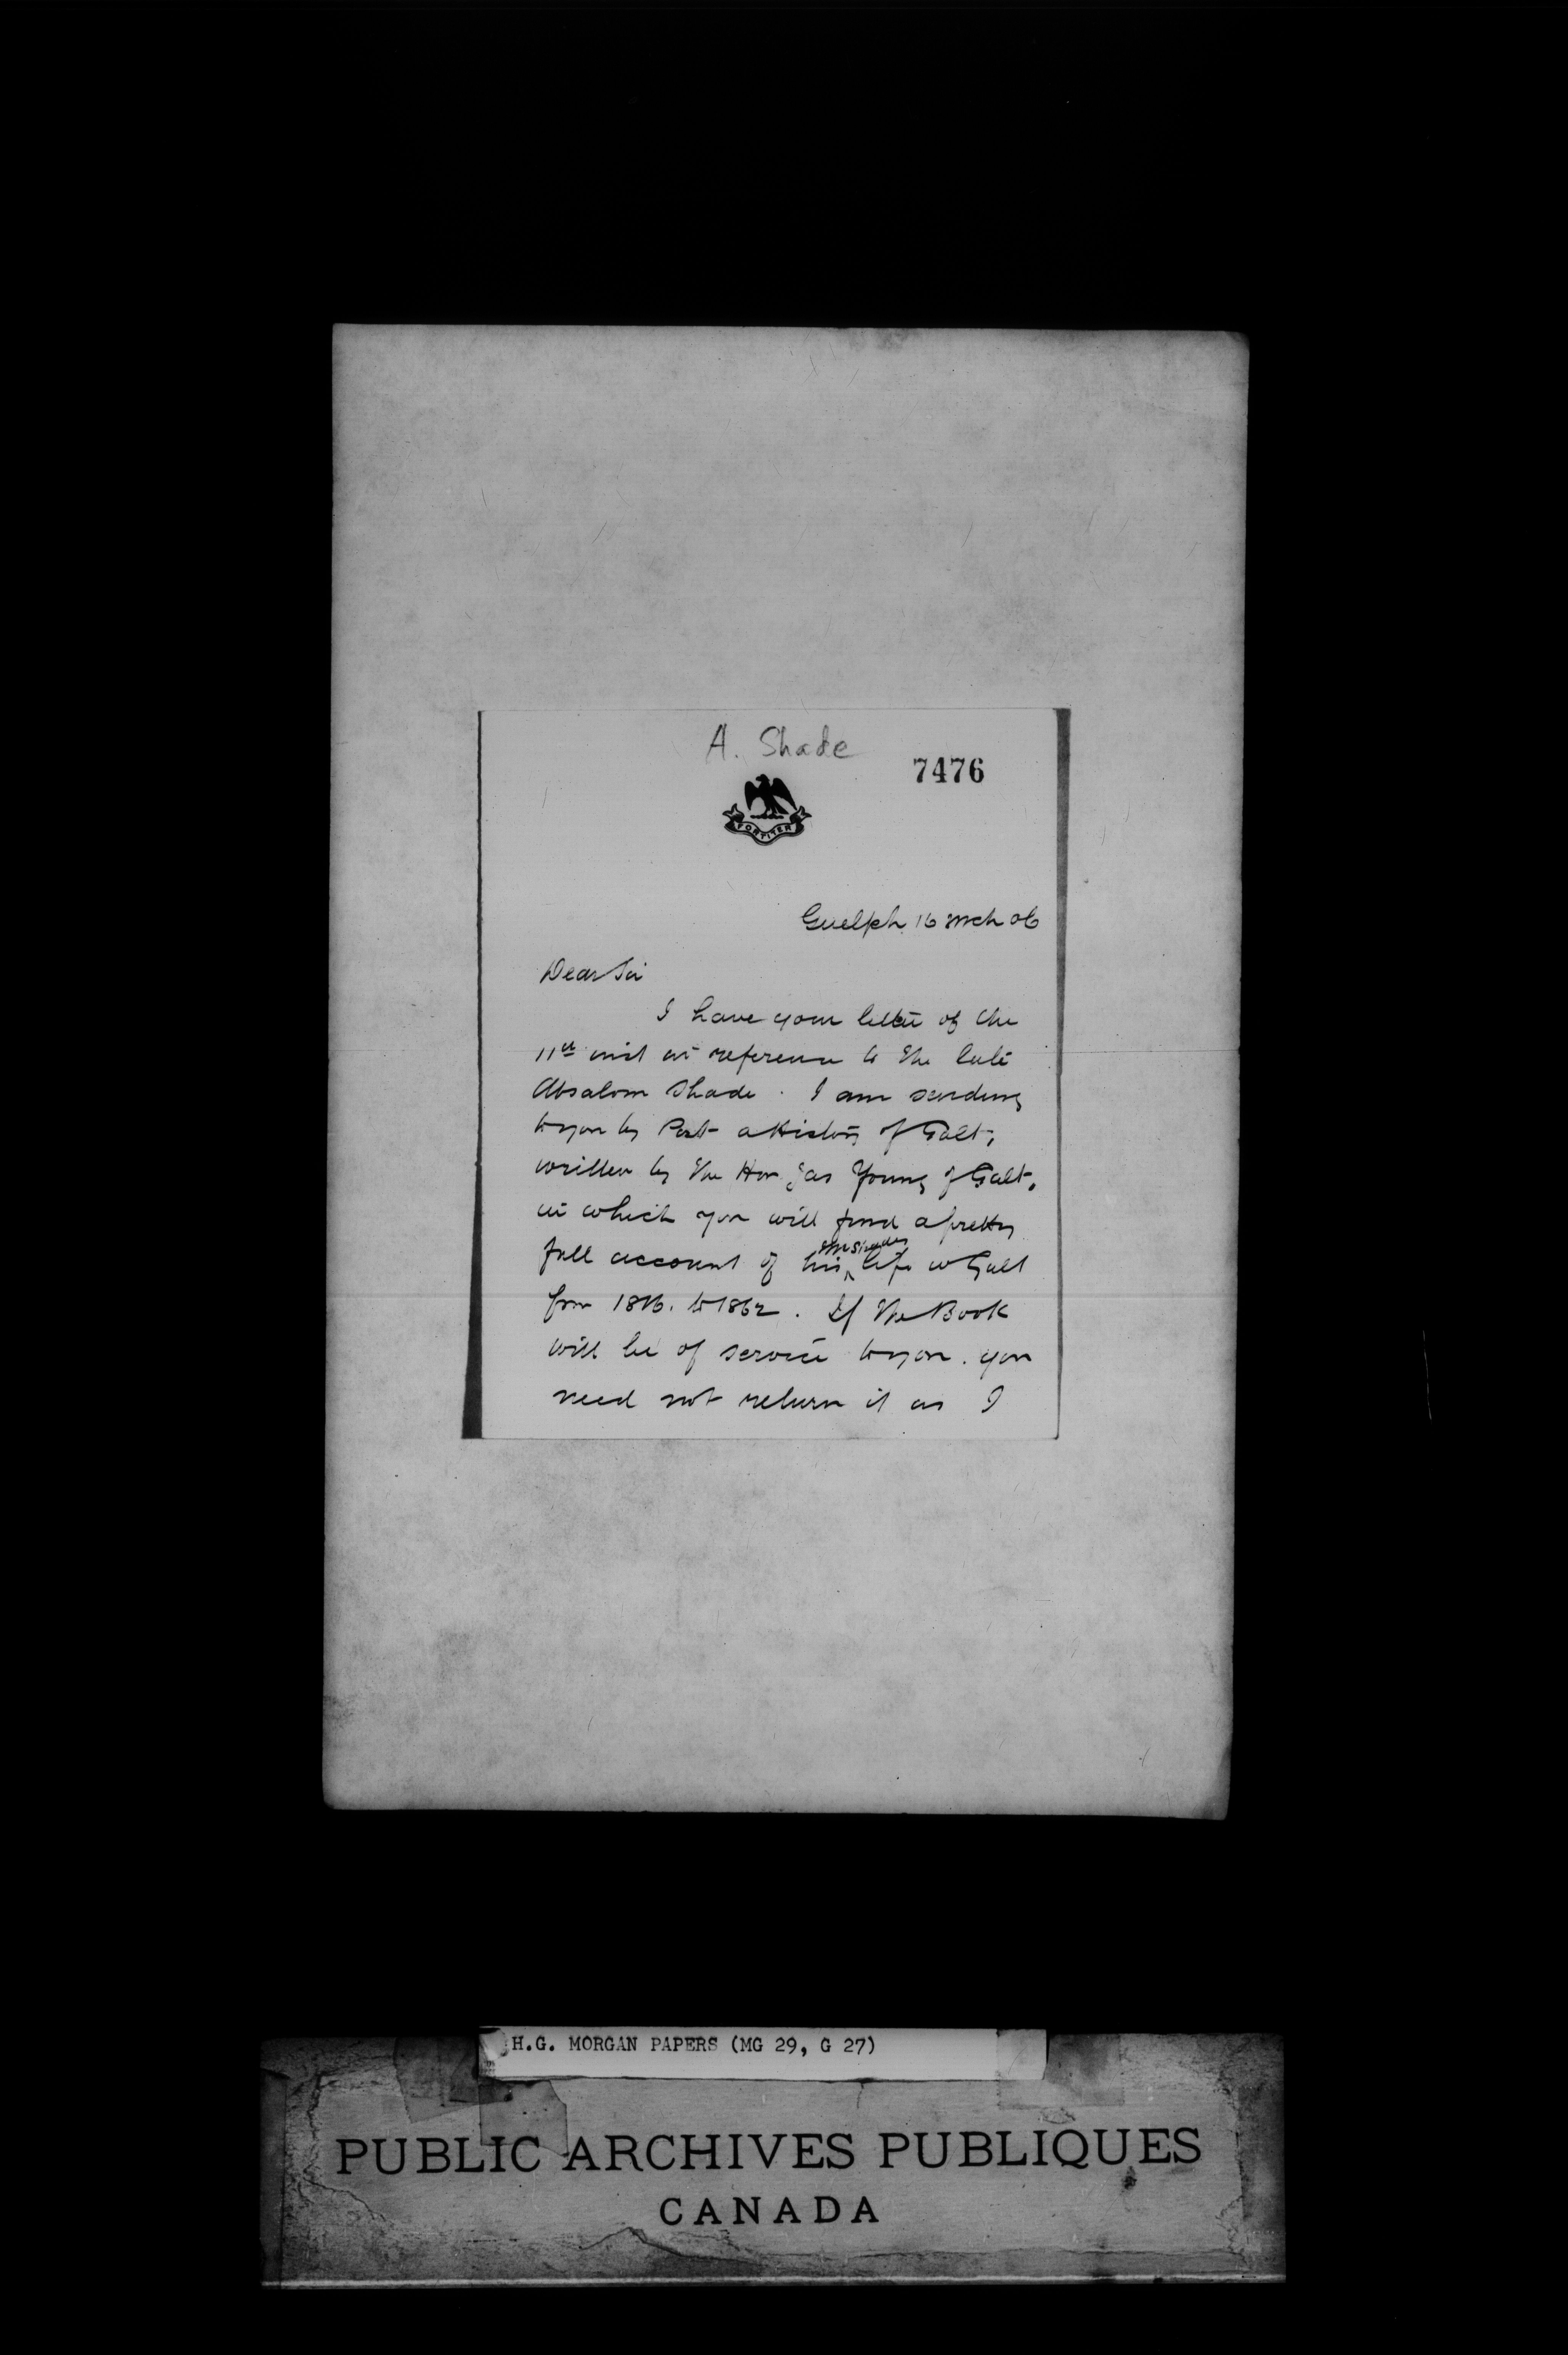 A. Shade
7476
FORTITER
Guelph 16 Mch 06
Dear Sir
I have your letter of the
11th inst in reference to the late
Absalom Shade. I am sending
to you by Post a History of Galt,
written by the Hon Jas Young of Galt,
in which you will find a pretty
full account of his ^ Mr Shades life in Galt
from 1816. to 1862. If the Book
will be of service to you. you
need not return it as I
H.G. MORGAN PAPERS (MG 29, G 27)
PUBLIC ARCHIVES PUBLIQUES
CANADA